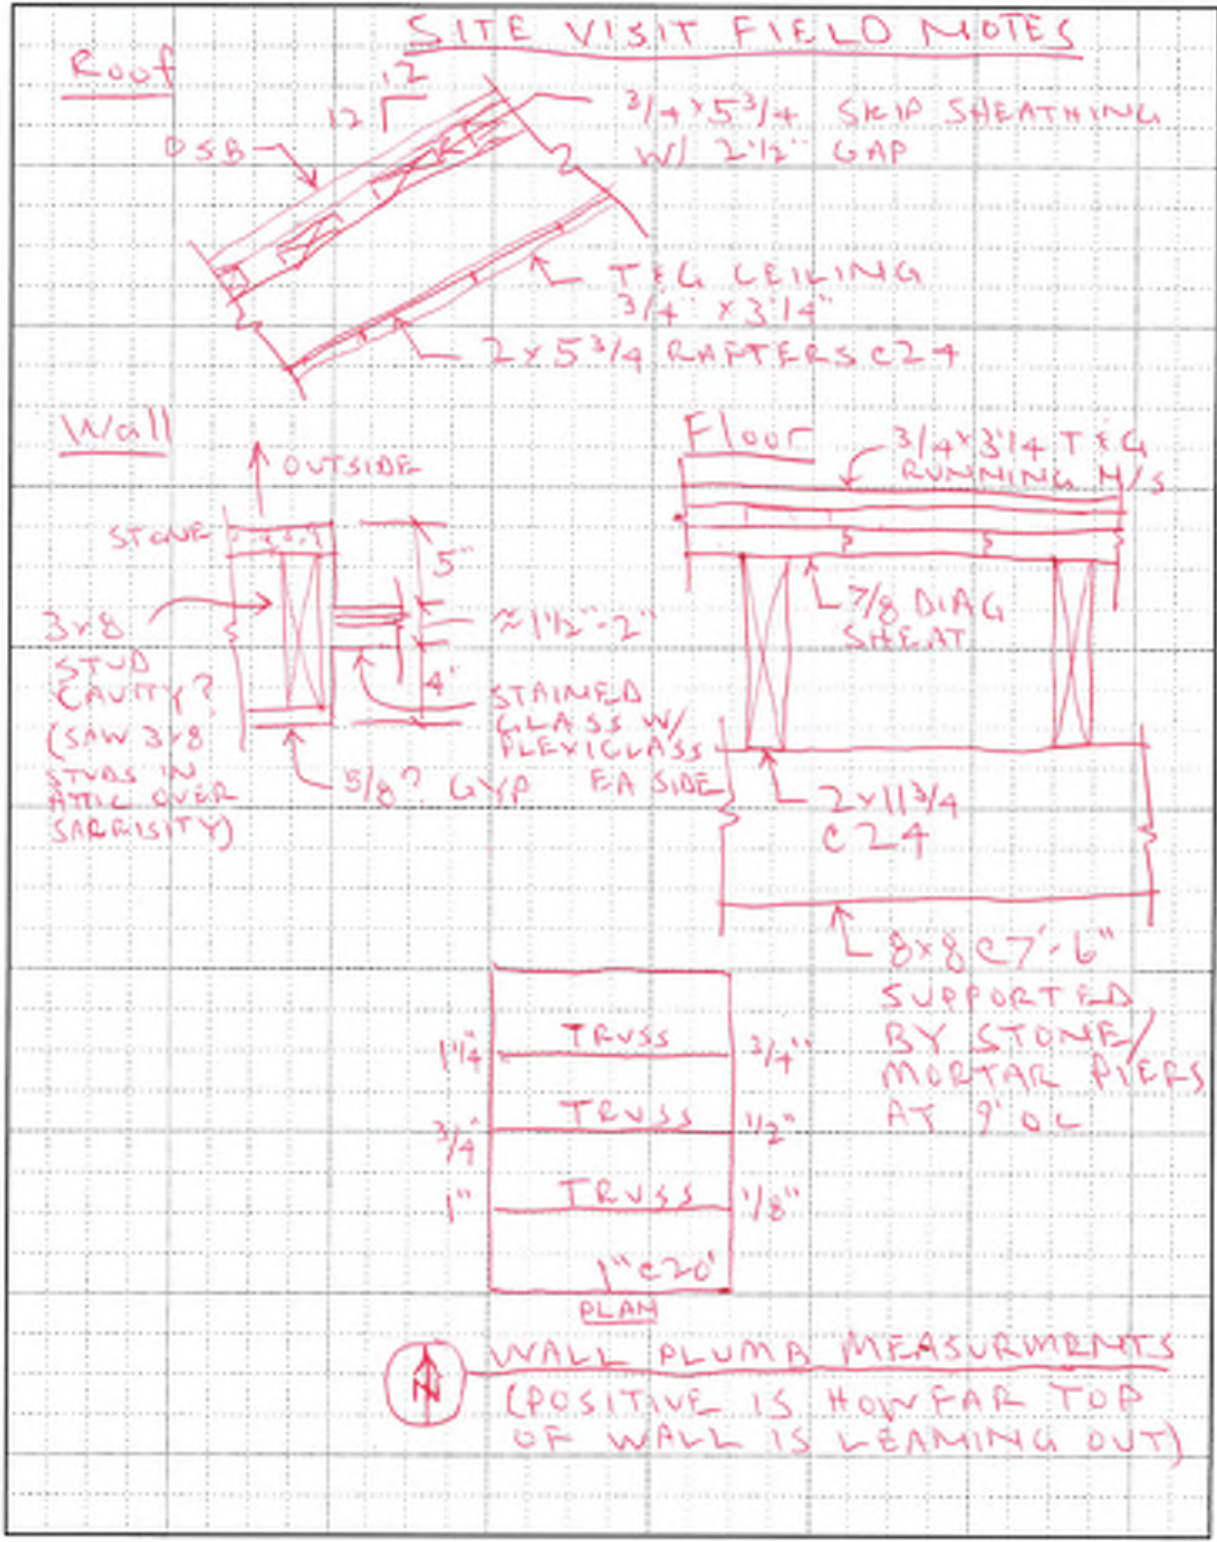 SITE VISIT FIELD NOTES
Roof
12
12
OSB
3/4 x 5 3/4 SKIP SHEATHING
W/ 2 1/2" GAP
T & G CEILING
3/4" x 3 1/4"
2 x 5 3/4 RAFTERS @ 24
Wall
OUTSIDE
STONE
5"
≈ 1 1/2" - 2"
4"
3x8
STUD
CAVITY?
(SAW 3x8
STUDS IN
ATTIC OVER
SARRISITY)
STAINED
GLASS W/
PLEXIGLASS
EA SIDE
5/8? GYP
Floor
3/4 x 3 1/4 T & G
RUNNING N/S
7/8 DIAG
SHEAT
2 x 11 3/4
@ 24
8x8 @ 7'-6"
SUPPORTED
BY STONE/
MORTAR PIERS
AT 9' OC
1 1/4" TRUSS 3/4"
3/4" TRUSS 1/2"
1" TRUSS 1/8"
1" @ 20'
PLAN
N
WALL PLUMB MEASURMENTS
(POSITIVE IS HOW FAR TOP
OF WALL IS LEANING OUT)